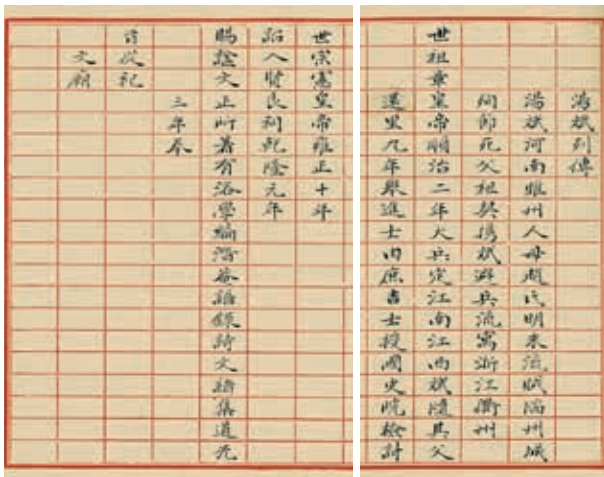 湯斌列傳
湯斌河南睢州人母趙氏明末流賊陷州城
殉節死父祖契携斌避兵流寓浙江衢州
世祖章皇帝順治二年大兵定江南江西斌隨其父
還里九年舉進士由庶吉士授國史院檢討
世宗憲皇帝雍正十年
詔入賢良祠乾隆元年
賜諡文正所著有洛學編潛菴語錄詩文諸集道光
三年奉
旨從祀
文廟